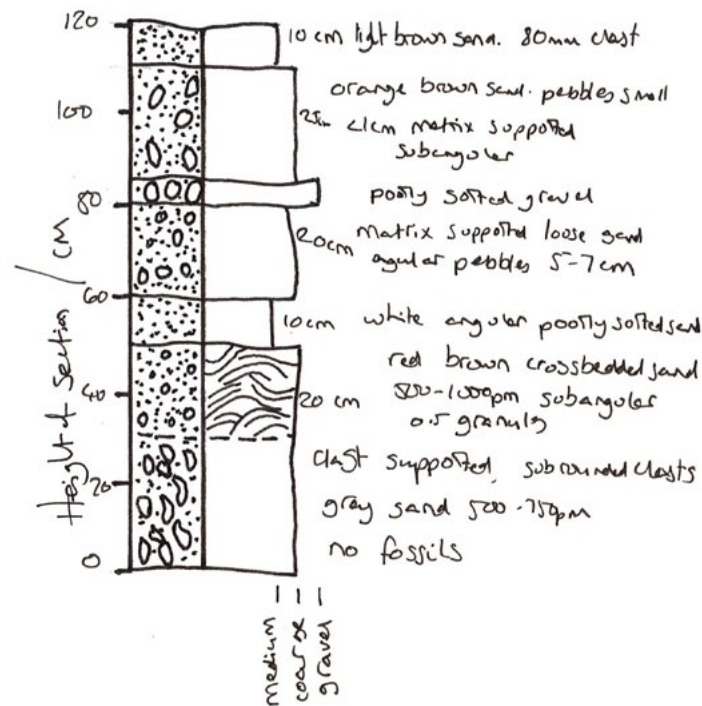 120
10 cm light brown sand. 80mm clast
orange brown sand. pebbles small
100
25cm <1cm matrix supported
subangular
80
poorly sorted gravel
20cm matrix supported loose sand
agular pebbles 5-7cm
60
10cm white angular poorly sorted sand
red brown crossbedded sand
40
20 cm 800-1000µm subangular
0.5 granuls
clast supported, subrounded clasts
20
gray sand 500-750µm
0
no fossils
Height of section / cm
medium
coarse
gravel